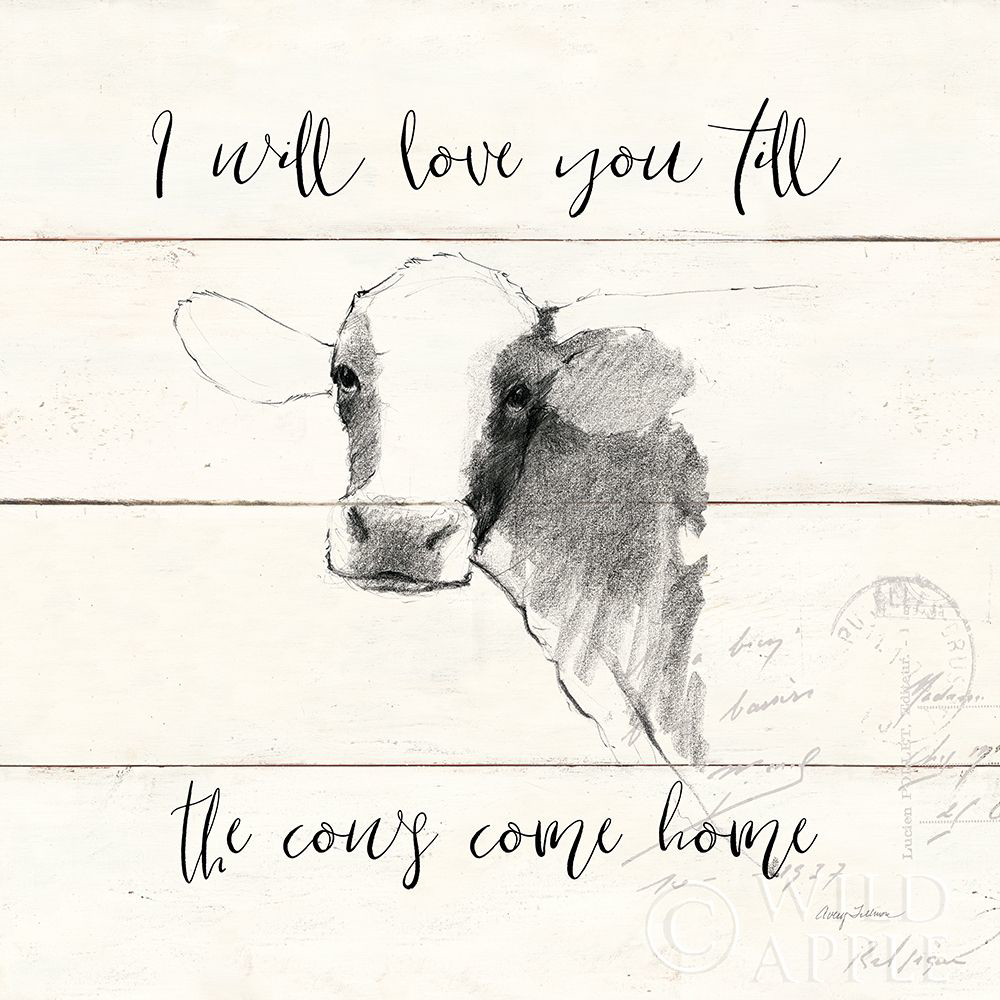 I will love you till
Madame
Lucien
the cows come home
1937
Avery Tillmon
© WILD
APPLE